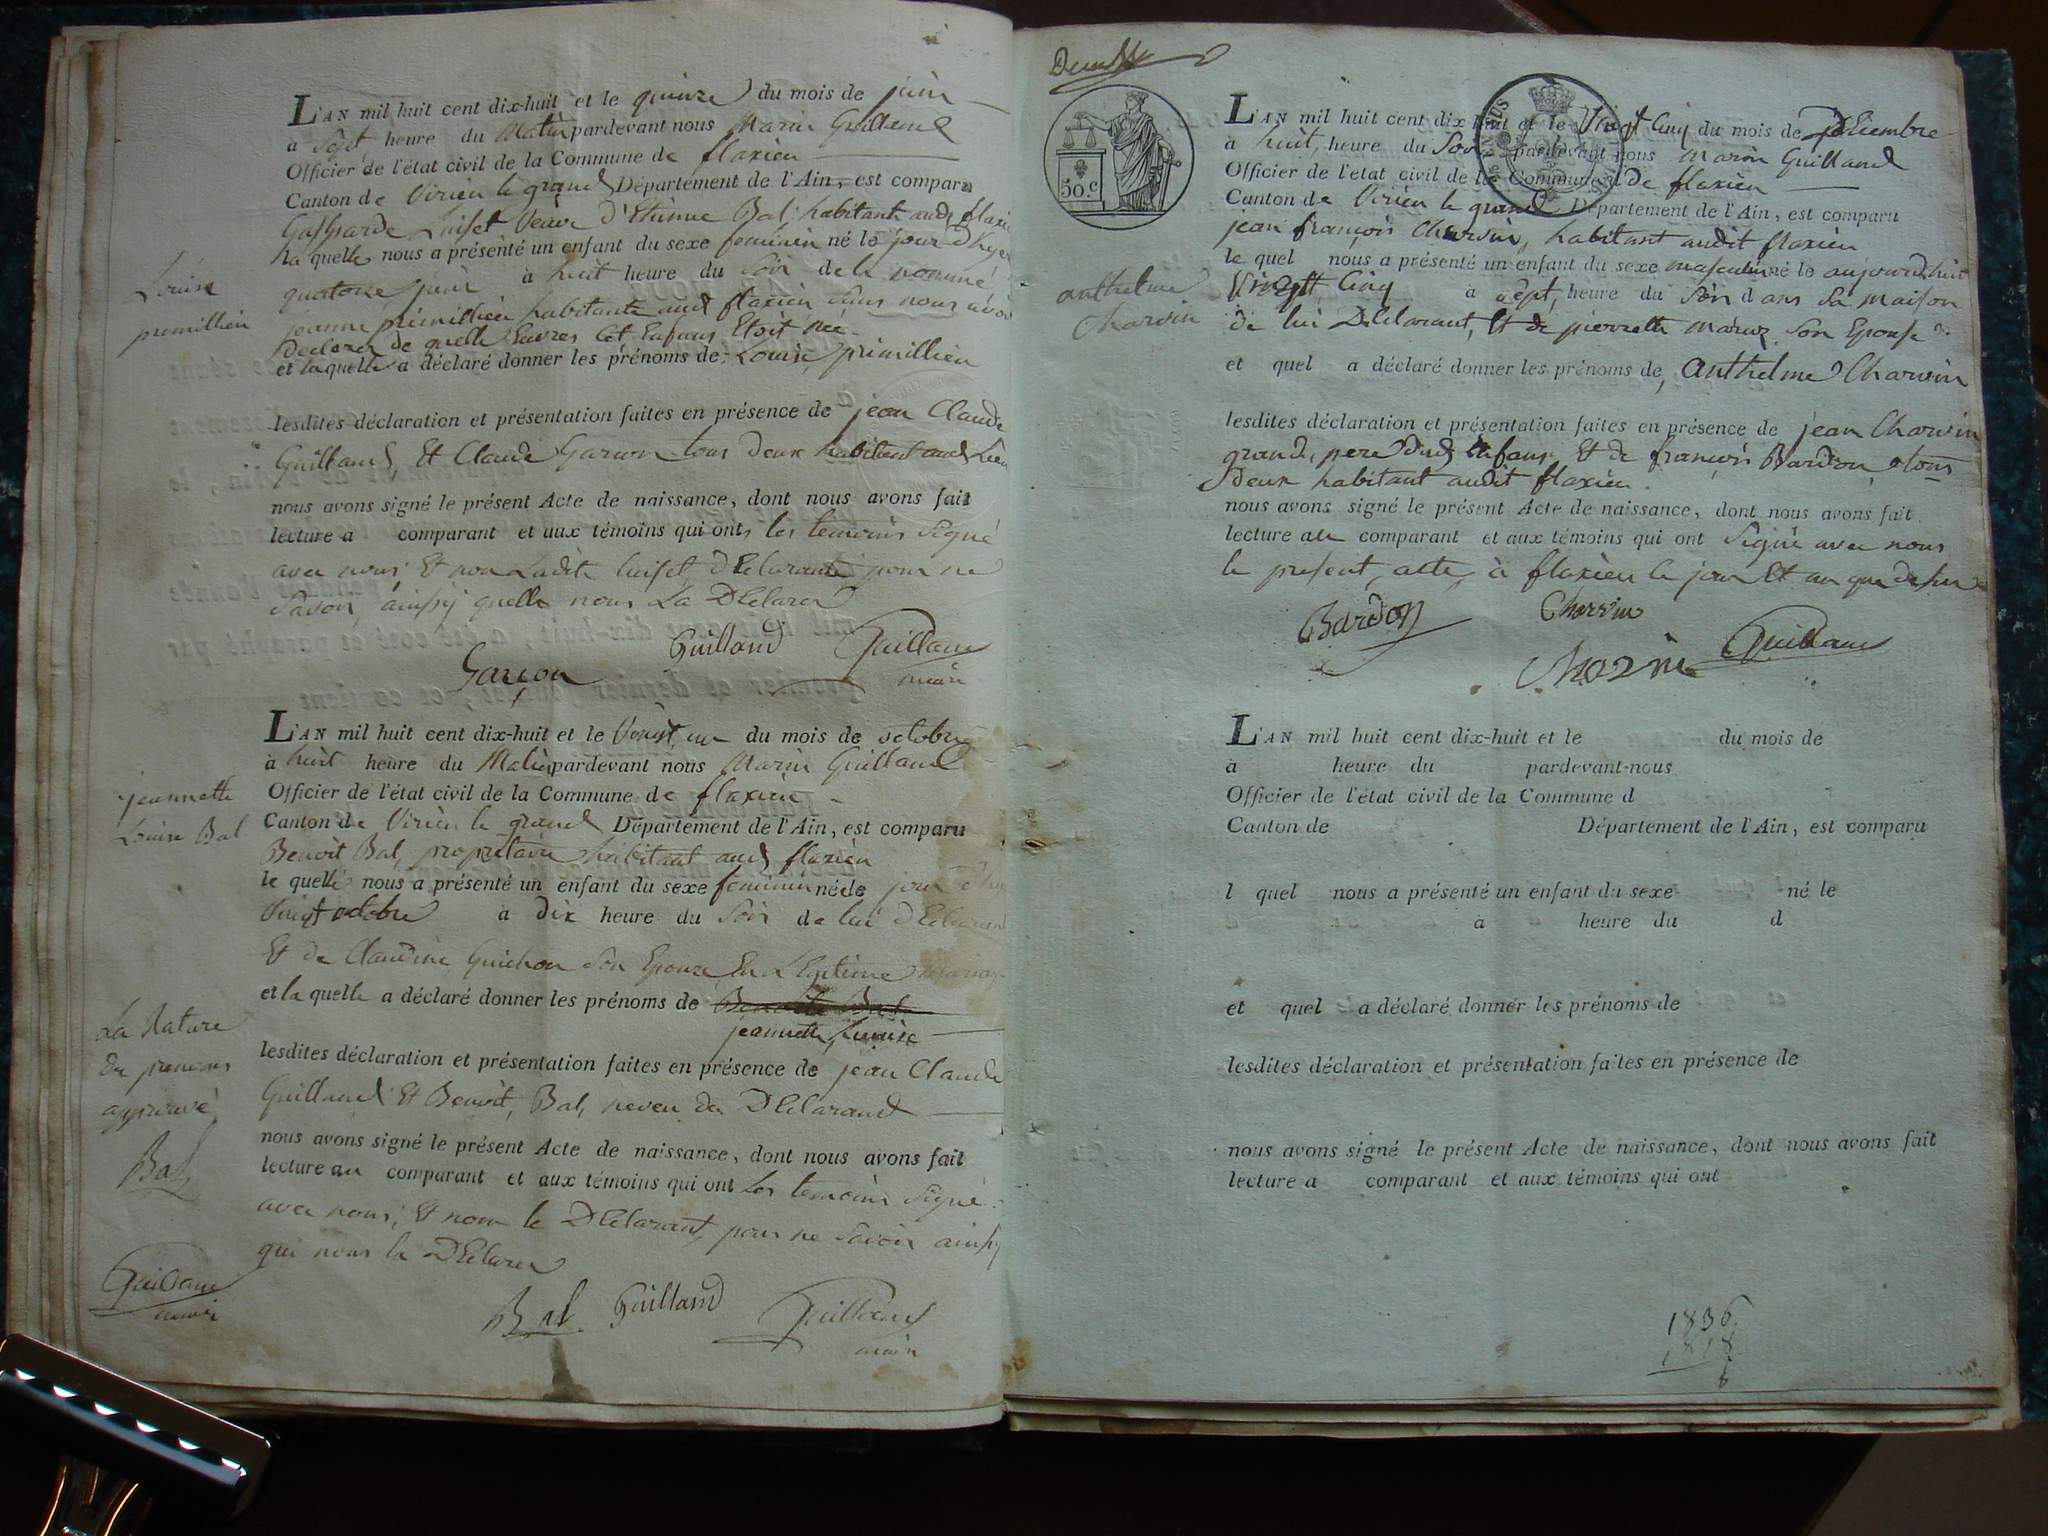 L'AN mil huit cent dix-huit et le quinze du mois de juin
à Sept heure du Matin pardevant nous Marin Guilland
Officier de l'état civil de la Commune de flaxieu
Canton de Virieu le grand Département de l'Ain, est comparu
Gasparde Luiset Veuve d'Etienne Bal, habitante aud flaxieu
la quelle nous a présenté un enfant du sexe feminin né le jour d'hyer
quatorze juin à huit heure du Soir de la nommé
jeanne primillieu habitante aud flaxieu Sans nous avoir
Declarer de quelle Euvres Cet Enfans Etoit née
et la quelle a déclaré donner les prénoms de Louise primillieu
Louise
primillieu
lesdites déclaration et présentation faites en présence de jean Claude
Guilland, Et Claude Garçon tous deux habitant aud Lieu
nous avons signé le présent Acte de naissance, dont nous avons fait
lecture a comparant et aux témoins qui ont les temoins Signé
avec nous, Et non Ladite luiset, Déclarante pour ne
Savoir, ainsy quelle nous La Déclaré
Garçon Guilland Guilland
maire
L'AN mil huit cent dix-huit et le Vingt un du mois de octobre
à huit heure du Matin pardevant nous Marin Guilland
Officier de l'état civil de la Commune de flaxieu
Canton de Virieu le grand Département de l'Ain, est comparu
Benoit Bal, propriétaire habitant aud flaxieu
le quelle nous a présenté un enfant du sexe feminin né le jour d'hy
Vingt octobre à dix heure du Soir de lui Déclarant
Et de Claudine Guichon Son Epouze En Légitime mariage
et la quelle a déclaré donner les prénoms de Benoite Bal
jeannette Louise
jeannette
Louise Bal
lesdites déclaration et présentation faites en présence de jean Claude
Guilland Et Benoit, Bal, neveu du Déclarand
nous avons signé le présent Acte de naissance, dont nous avons fait
lecture au comparant et aux témoins qui ont Les temoins Signé
avec nous, Et nom le Déclarant, pour ne Savoir ainsy
qui nous la Déclaré
Bal Guilland Guilland
maire
La Rature
du prenoms
approuvé
Bal
Guilland
maire
50.C
L'AN mil huit cent dix-huit et le Vingt Cinq du mois de Décembre
à huit, heure du Soir pardevant nous Marin Guilland
Officier de l'état civil de la Commune de flaxieu
Canton de Virieu le grand Département de l'Ain, est comparu
jean françois Charvin, habitant audit flaxieu
le quel nous a présenté un enfant du sexe masculin né le aujourdhuit
Vingtt Cinq à Sept, heure du Soir dans Sa maison
de lui Déclarant, Et de pierrette Son Epouse
et quel a déclaré donner les prénoms de, Anthelme Charvin
anthelme
Charvin
lesdites déclaration et présentation faites en présence de jean Charvin
grand, pere dud Enfant, Et de françois Bardon tous
Deux habitant audit flaxieu.
nous avons signé le présent Acte de naissance, dont nous avons fait
lecture au comparant et aux témoins qui ont Signé avec nous
le present, acte, à flaxieu le jour Et an que dessu
Bardon Charvin
Guilland
L'AN mil huit cent dix-huit et le du mois de
à heure du pardevant-nous
Officier de l'état civil de la Commune d
Canton de Département de l'Ain, est comparu
l quel nous a présenté un enfant du sexe né le
à heure du d
et quel a déclaré donner les prénoms de
lesdites déclaration et présentation faites en présence de
nous avons signé le présent Acte de naissance, dont nous avons fait
lecture a comparant et aux témoins qui ont
1836
1818